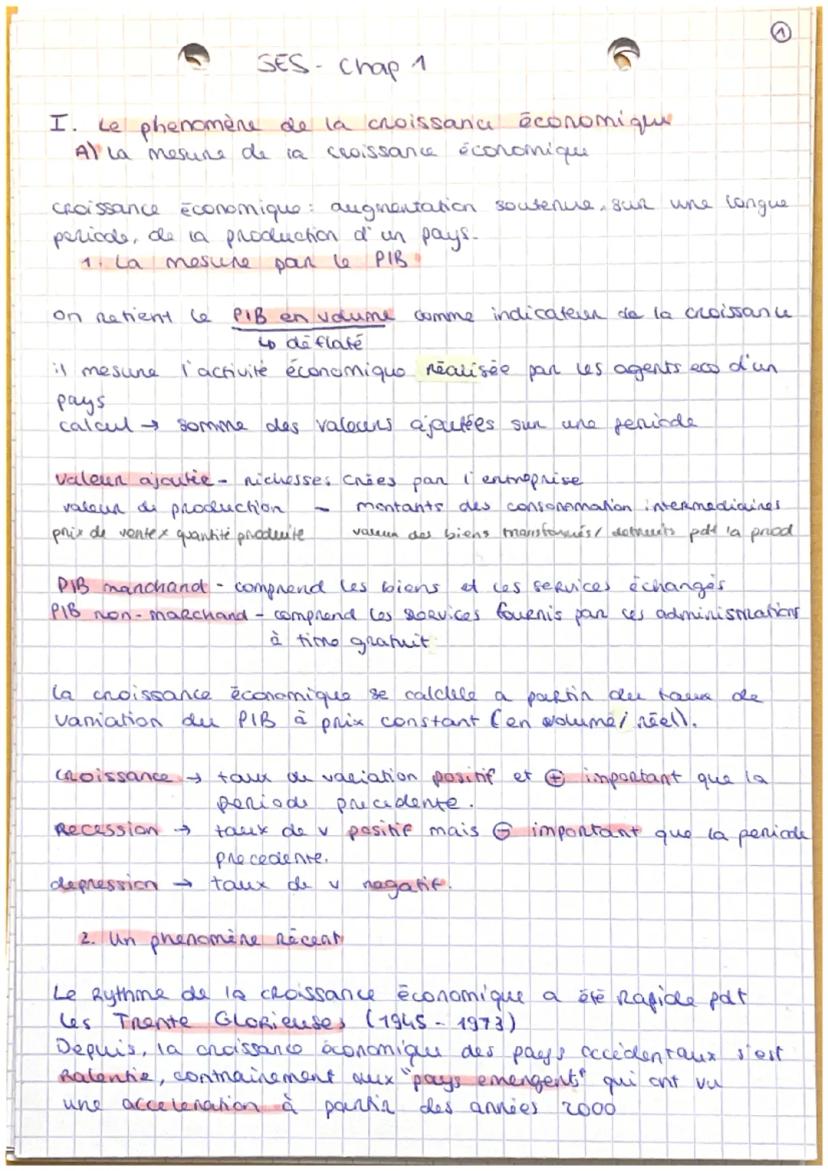 ①
SES - Chap 1
I. Le phenomène de la croissance économique
A) La mesure de la croissance économique
croissance économique : augmentation soutenue, sur une longue
periode, de la production d'un pays.
1. La mesure par le PIB
on retient le PIB en volume comme indicateur de la croissance
↳ déflaté
il mesure l'activité économique réalisée par les agents eco d'un
pays
calcul → somme des valeurs ajoutées sur une periode
valeur ajoutée - richesses crées par l'entreprise
valeur de production - montants des consommation intermediaires
prix de vente x quantité produite valeur des biens transformés / detruits pdt la prod
PIB marchand - comprend les biens et les services échangés
PIB non-marchand - comprend les services fournis par les administrations
à titre gratuit
la croissance économique se calcule a partir du taux de
variation du PIB à prix constant (en volume / réel).
croissance → taux de variation positif et ⊕ important que la
periode precedente.
Recession → taux de v positif mais ⊖ important que la periode
precedente.
depression → taux de v negatif.
2. Un phenomène récent
Le Rythme de la croissance économique a été Rapide pdt
les Trente Glorieuses (1945 - 1973)
Depuis, la croissance économique des pays occidentaux s'est
Ralentie, contrairement aux "pays emergents" qui ont vu
une acceleration à partir des années 2000